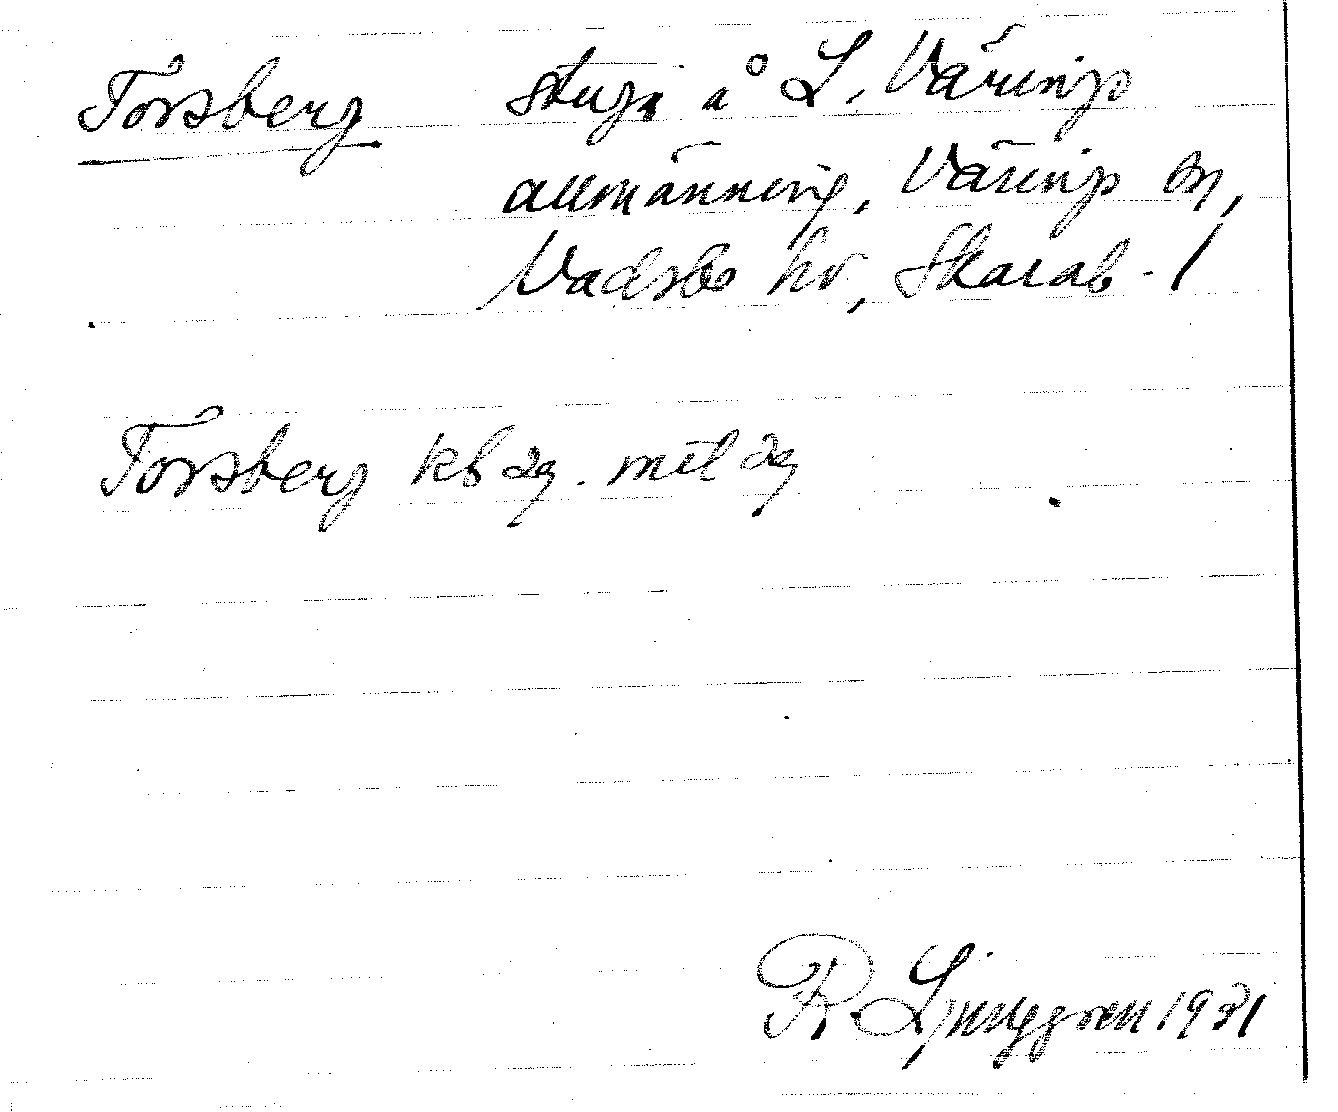 Torsberg stuga å L. Värings
allmänning, Värings sn,
Vadsbo hd, Skarab. l
Torsberg kb 29. mtl 29
R. Ljunggren 1931